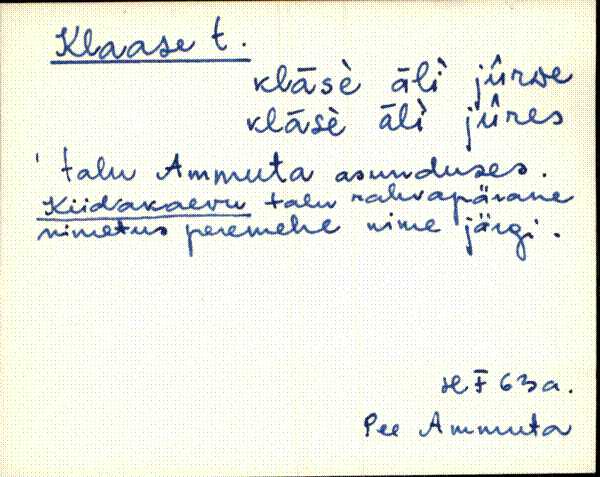 Klaase t.
klāsè āli̇̀ jûrwe
klāsè āli̇̀ jûres
' talu Ammuta asunduses.
Kiidakaevu talu rahvapärane
nimetus peremehe nime järgi.
I 63a.
Pee Ammuta